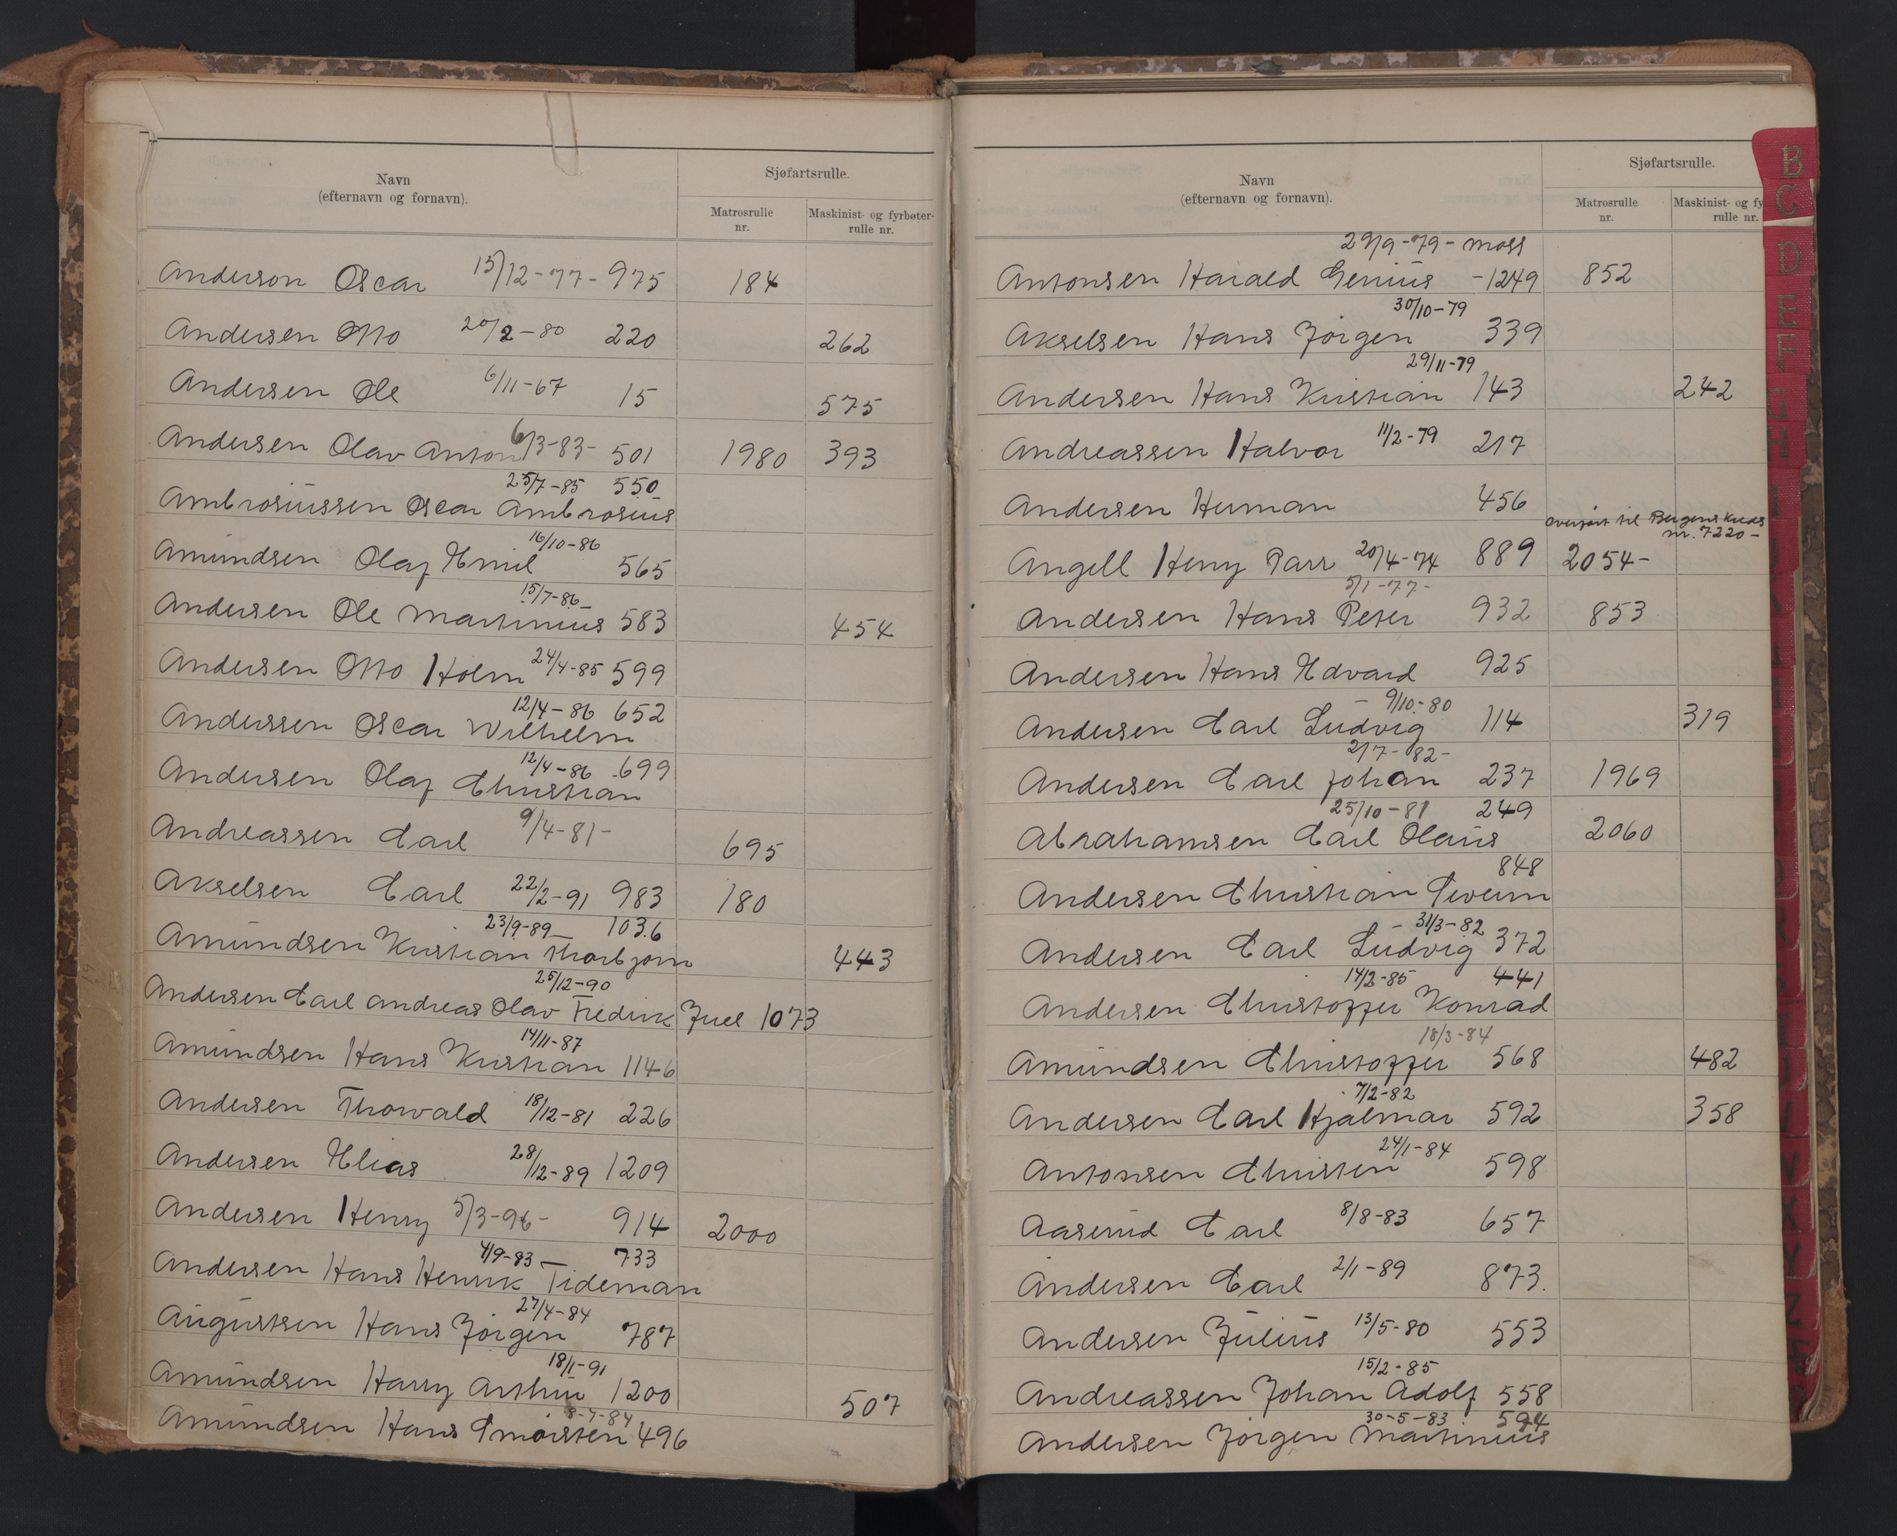 Navn
(efternavn og fornavn).
Sjøfartsrulle.
Matrosrulle nr.
Maskinist- og fyrbøter-rulle nr.
Anderson Oscar 15/12-77- 975 184
Andersen Otto 20/2-80 220 262
Andersen Ole 6/11-67 15 575
Andersen Olav Anton 6/3-83- 501 1980 393
25/7-85 550
Ambrosiussen Oscar Ambrosius
16/10-86
Amundsen Olaf Emil 565
15/7-86-
Andersen Ole Martinius 583 454
Andersen Otto Holm 24/4-85 599
12/4-86 652
Anderssen Oscar Wilhelm
12/4-86 699
Andersen Olaf Christian
Andreassen Carl 9/4-81- 695
Akselsen Carl 22/2-91 983 180
23/9-89- 1036
Amundsen Kristian Thorbjørn 443
25/12-90
Andersen Carl Andreas Olav Fredrik Juel 1073
14/11-87
Amundsen Hans Kristian 1146
Andersen Thorvald 18/12-81 226
Andersen Elias 28/12-89 1209
Andersen Henry 5/3-96- 914 2000
4/9-83- 733
Andersen Hans Henrik Tideman
27/4-84
Augustsen Hans Jørgen 787
18/1-91
Amundsen Harry Arthur 1200 507
8-7-84
Amundsen Hans 496
Navn
(efternavn og fornavn).
Sjøfartsrulle.
Matrosrulle nr.
Maskinist- og fy
rulle nr.
29/9-79- Moss
Antonsen Harald Genius -1249 852
30/10-79
Akselsen Hans Jørgen 339
29/11-79
Andersen Hans Kristian 143 242
Andreassen Halvor 11/2-79 217
Andersen Herman 456
overført til Bergens Kreds
nr. 7220-
Angell Henry Parr 20/4-74 889 2054-
5/1-77-
Andersen Hans Peter 932 853
Andersen Hans Edvard 925
9/10-80
Andersen Carl Ludvig 114 319
2/7-82-
Andersen Carl Johan 237 1969
25/10-81 249
Abrahamsen Carl Olaus 2060
848
Andersen Christian
31/3-82
Andersen Carl Ludvig 372
14/2-85 441
Andersen Christoffer Konrad
18/3-84
Amundsen Christoffer 568 482
7/2-82
Andersen Carl Hjalmar 592 358
24/1-84
Antonsen Christen 598
Aaserud Carl 8/8-83 657
Andersen Carl 2/1-89 873.
Andersen Julius 13/5-80 553
15/2-85
Andreassen Johan Adolf 558
30-5-83 594
Andersen Jørgen Martinius
B
C
D
E
F